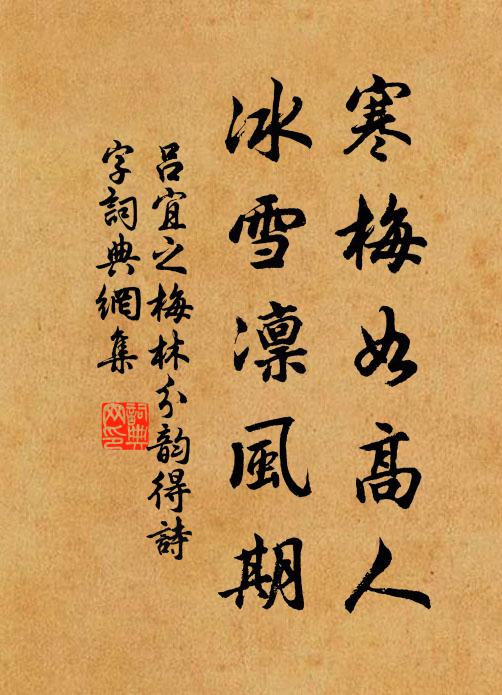 寒梅如高人
冰雪凛風期
吕宜之梅林分韵得詩
字詞典網集
詞典网印